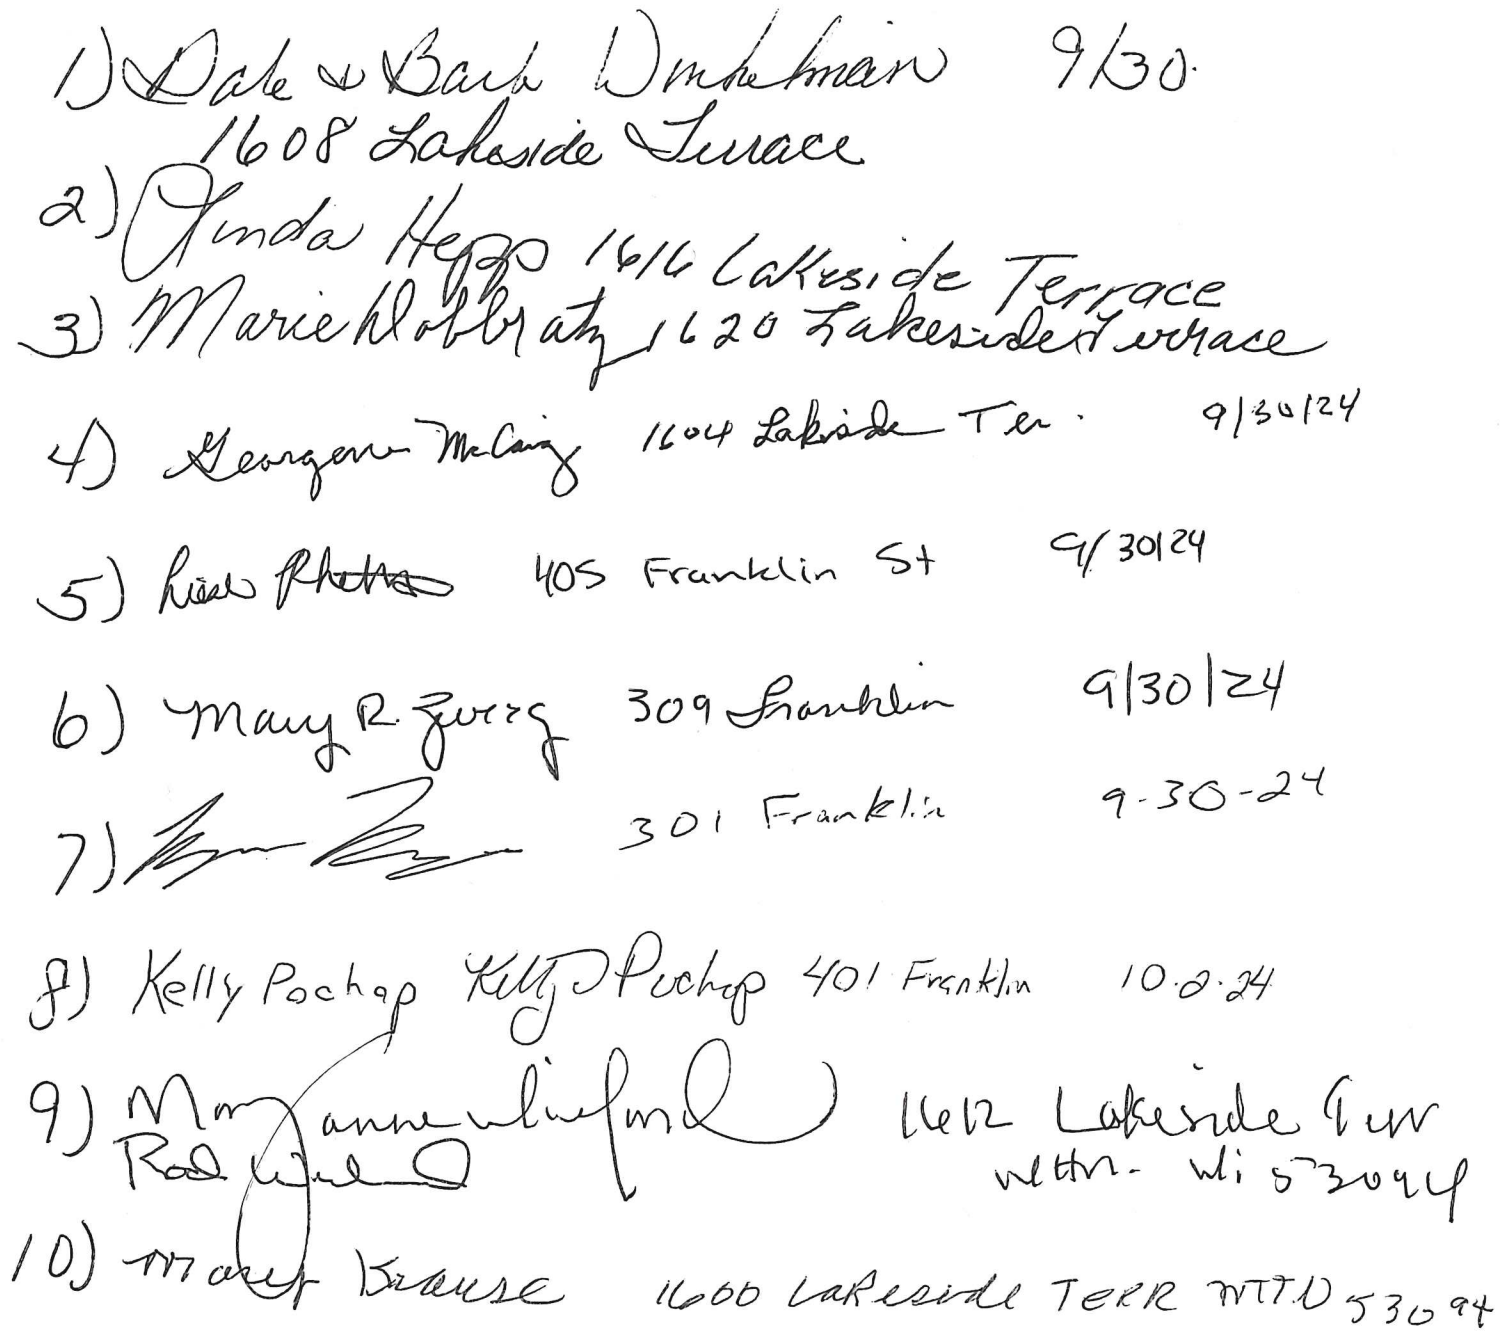 1) Dale & Barb Winkelman 9/30
1608 Lakeside Terrace
2) Linda Hepp 1616 Lakeside Terrace
3) Marie Dobbratz 1620 Lakeside Terrace
4) Georgene McCaig 1604 Lakeside Ter. 9/30/24
5) 405 Franklin St 9/30/24
6) Mary R. Zwerg 309 Franklin 9/30/24
7) 301 Franklin 9-30-24
8) Kelly Pochap Kelly Pochap 401 Franklin 10.2.24
9) Mary anne 1612 Lakeside Terr
Rod Wtn. Wi 53094
10) Krause 1600 Lakeside TERR WTTN 53094